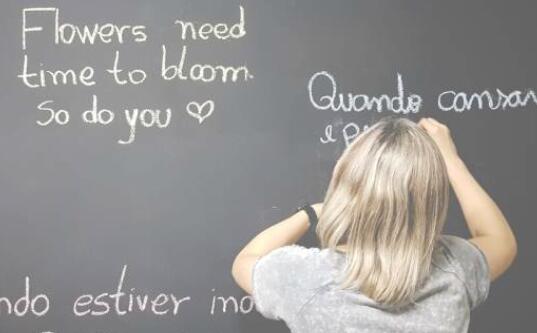 Flowers need
time to bloom.
So do you ♡
Quando cansar
e
estiver